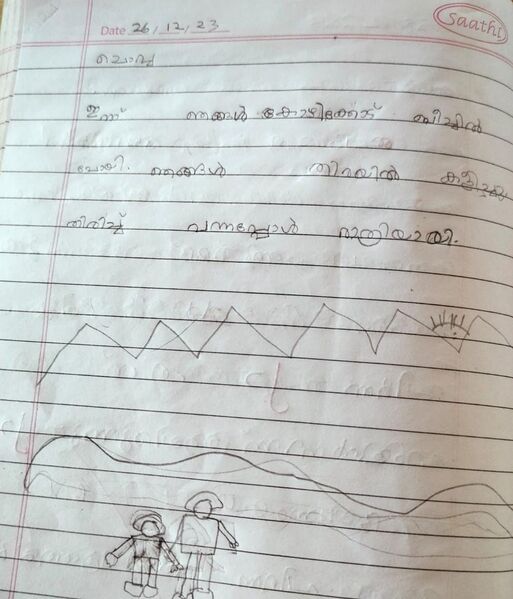 Saathi
Date 26/12/23
ചൊവ്വ
ഇന്ന് ഞങ്ങൾ കോഴിക്കോട് ബീച്ചിൽ
പോയി. ഞങ്ങൾ തിരയിൽ കളിച്ചു
തിരിച്ച് വന്നപ്പോൾ രാത്രിയായി.